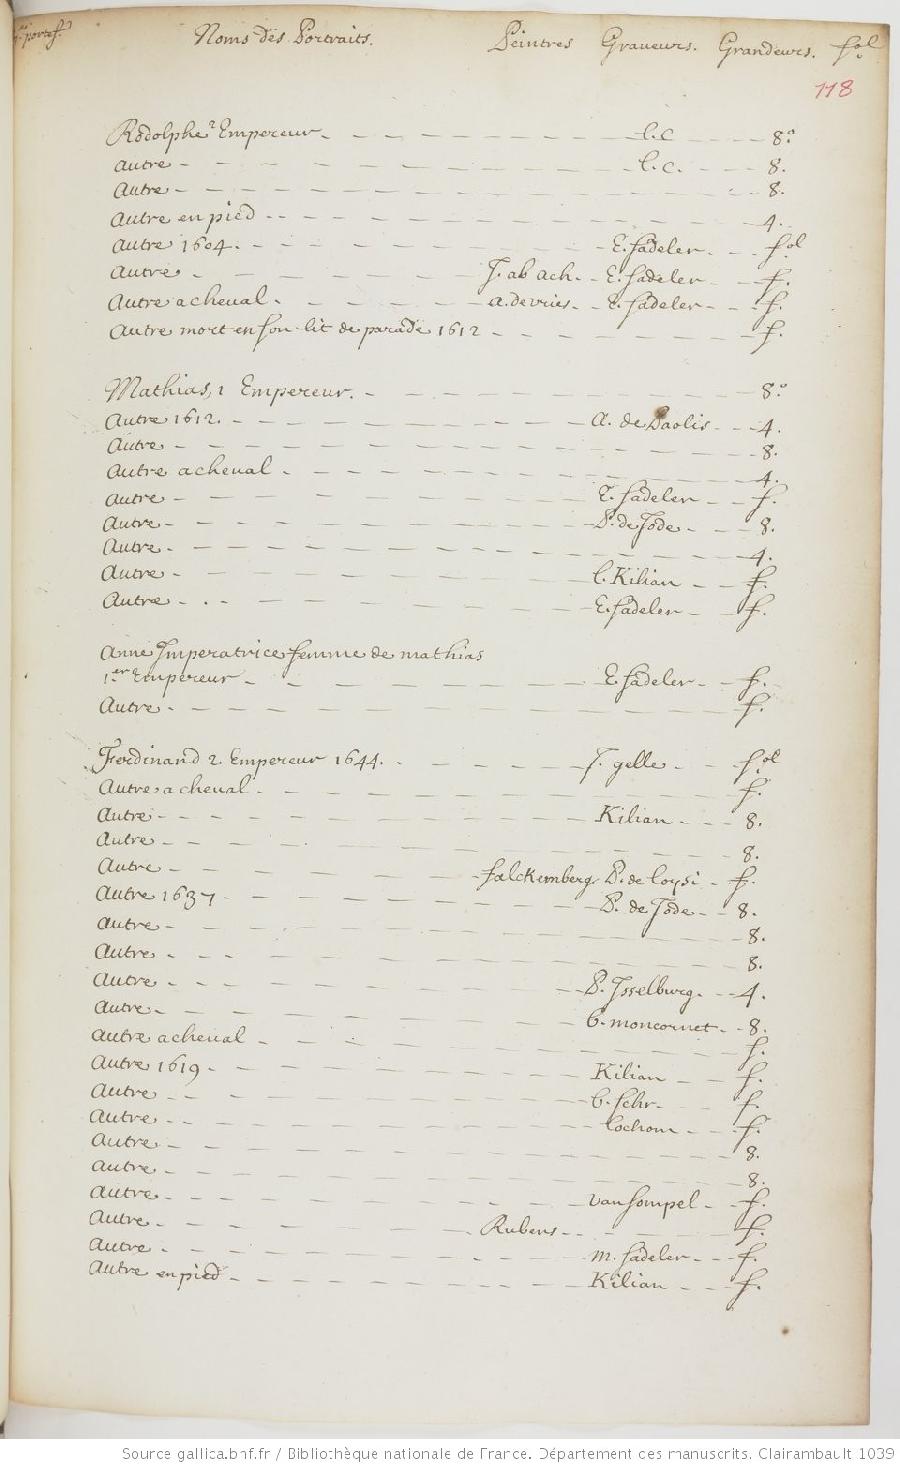 portef.
Noms des Portraits. Peintres Graveurs. Grandeurs. fol.
118
Rodolphe 2 Empereur l.c 8.°
Autre l.c. 8.
Autre 8.
Autre en pied 4.
Autre 1604. E. sadeler. fol.
Autre J. ab ach. E. sadeler f.
Autre a cheval. a. de vries E. sadeler f.
Autre mort en son lit de parade 1612 f.
Mathias, 1 Empereur. 8.°
Autre 1612. A. de Paolis 4.
Autre 8.
Autre a cheval 4.
Autre E. sadeler f.
Autre P. de Jode 8.
Autre 4.
Autre l. Kilian f.
Autre E. sadeler f.
Anne Imperatrice femme de mathias
1.er Empereur E. sadeler f.
Autre f.
Ferdinand 2. Empereur 1644. J. gelle fol.
Autre a cheval f.
Autre Kilian 8.
Autre 8.
Autre falckemberg P. de loysi f.
Autre 1637 P. de Jode 8.
Autre 8.
Autre 8.
Autre P. Isselburg. 4.
Autre b. moncornet 8.
Autre a cheval f.
Autre 1619 Kilian f.
Autre b. schr. f.
Autre lochom f.
Autre 8.
Autre 8.
Autre van sompel f.
Autre Rubens f.
Autre m. sadeler f.
Autre en pied Kilian f.
Source gallica.bnf.fr / Bibliothèque nationale de France. Département des manuscrits. Clairambault 1039